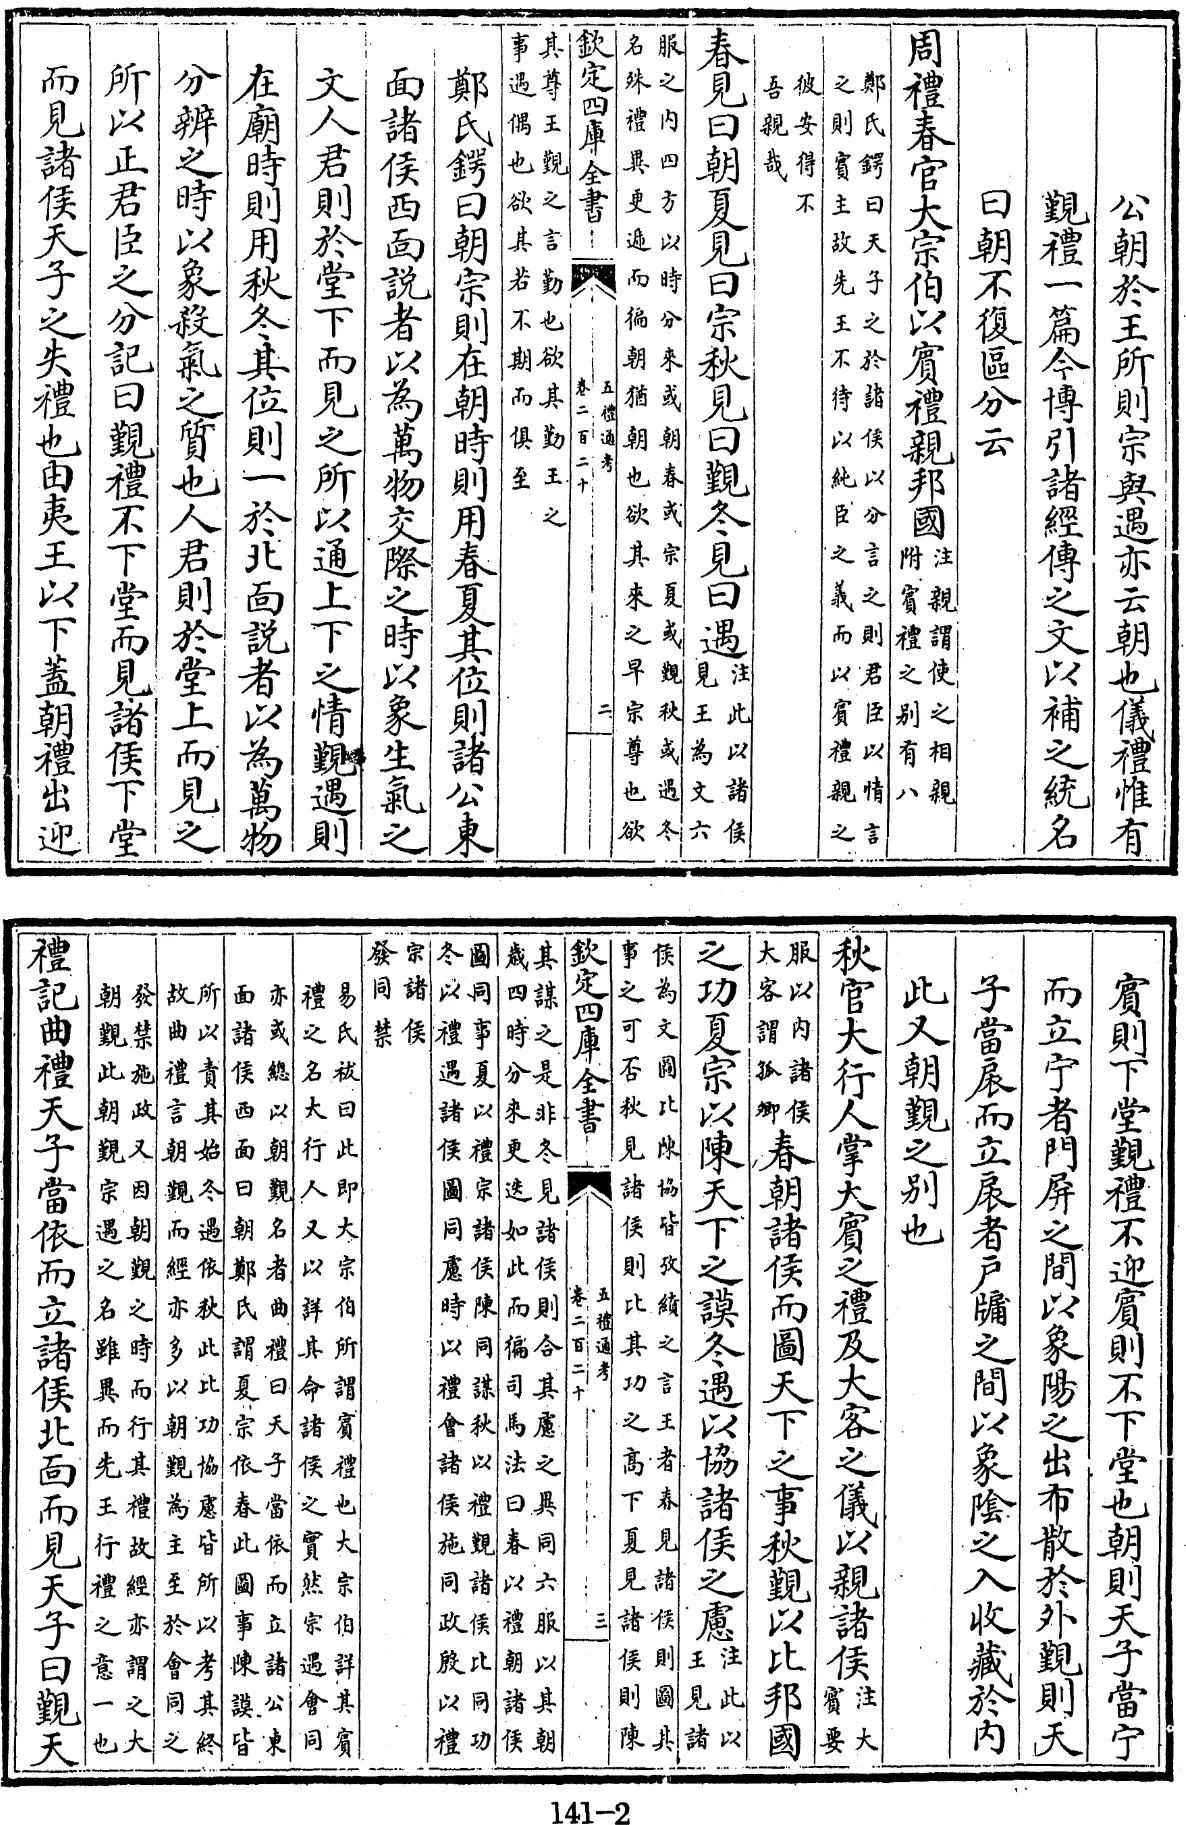 公朝於王所則宗與遇亦云朝也儀禮惟有
覲禮一篇今博引諸經傳之文以補之統名
曰朝不復區分云
周禮春官大宗伯以賓禮親邦國注親謂使之相親
附賓禮之别有八
鄭氏鍔曰天子之於諸侯以分言之則君臣以情言
之則賓主故先王不待以純臣之義而以賓禮親之
彼安得不
吾親哉
春見曰朝夏見曰宗秋見曰覲冬見曰遇注此以諸侯
見王為文六
服之内四方以時分來或朝春或宗夏或覲秋或遇冬
名殊禮異更遞而徧朝猶朝也欲其來之早宗尊也欲
欽定四庫全書
五禮通考
卷二百二十
二
其尊王覲之言勤也欲其勤王之
事遇偶也欲其若不期而俱至
鄭氏鍔曰朝宗則在朝時則用春夏其位則諸公東
面諸侯西面説者以為萬物交際之時以象生氣之
文人君則於堂下而見之所以通上下之情覲遇則
在廟時則用秋冬其位則一於北面説者以為萬物
分辨之時以象殺氣之質也人君則於堂上而見之
所以正君臣之分記曰覲禮不下堂而見諸侯下堂
而見諸侯天子之失禮也由夷王以下蓋朝禮出迎
賓則下堂覲禮不迎賓則不下堂也朝則天子當宁
而立宁者門屏之間以象陽之出布散於外覲則天
子當扆而立扆者戶牖之間以象陰之入收藏於内
此又朝覲之别也
秋官大行人掌大賓之禮及大客之儀以親諸侯注大
賓要
服以内諸侯
大客謂孤卿
春朝諸侯而圖天下之事秋覲以比邦國
之功夏宗以陳天下之謨冬遇以協諸侯之慮注此以
王見諸
侯為文圖比陳協皆攷績之言王者春見諸侯則圖其
事之可否秋見諸侯則比其功之高下夏見諸侯則陳
欽定四庫全書
五禮通考
卷二百二十
三
其謀之是非冬見諸侯則合其慮之異同六服以其朝
歲四時分來更迭如此而徧司馬法曰春以禮朝諸侯
圖同事夏以禮宗諸侯陳同謀秋以禮覲諸侯比同功
冬以禮遇諸侯圖同慮時以禮會諸侯施同政殷以禮
宗諸侯
發同禁
易氏祓曰此即大宗伯所謂賓禮也大宗伯詳其賓
禮之名大行人又以詳其命諸侯之實然宗遇會同
亦或總以朝覲名者曲禮曰天子當依而立諸公東
面諸侯西面曰朝鄭氏謂夏宗依春此圖事陳謨皆
所以責其始冬遇依秋此比功協慮皆所以考其終
故曲禮言朝覲而經亦多以朝覲為主至於會同之
發禁施政又因朝覲之時而行其禮故經亦謂之大
朝覲此朝覲宗遇之名雖異而先王行禮之意一也
禮記曲禮天子當依而立諸侯北面而見天子曰覲天
141-2